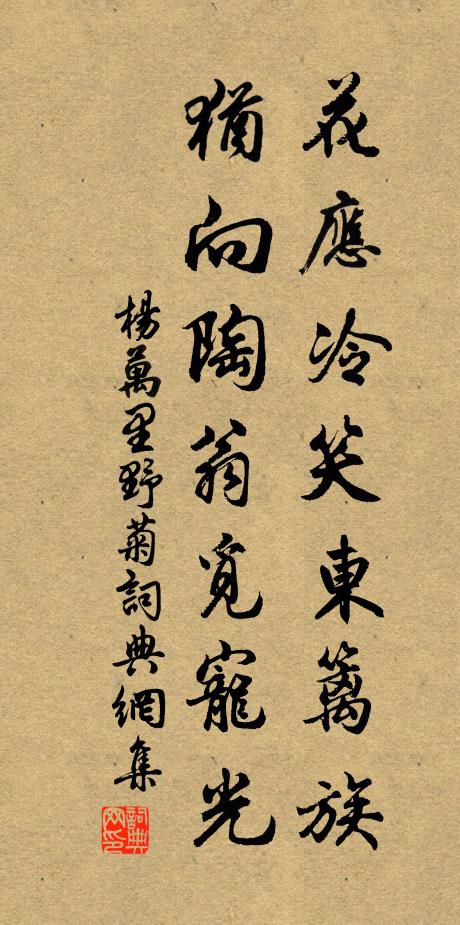 花應冷笑東籬族
猶向陶翁覓寵光
楊萬里野菊詞典網集
詞典網印